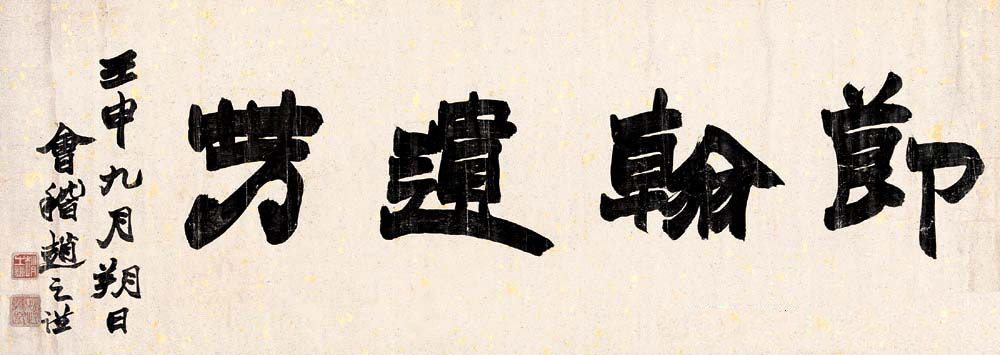 節翰遺芳
壬申九月朔日
會稽趙之謙